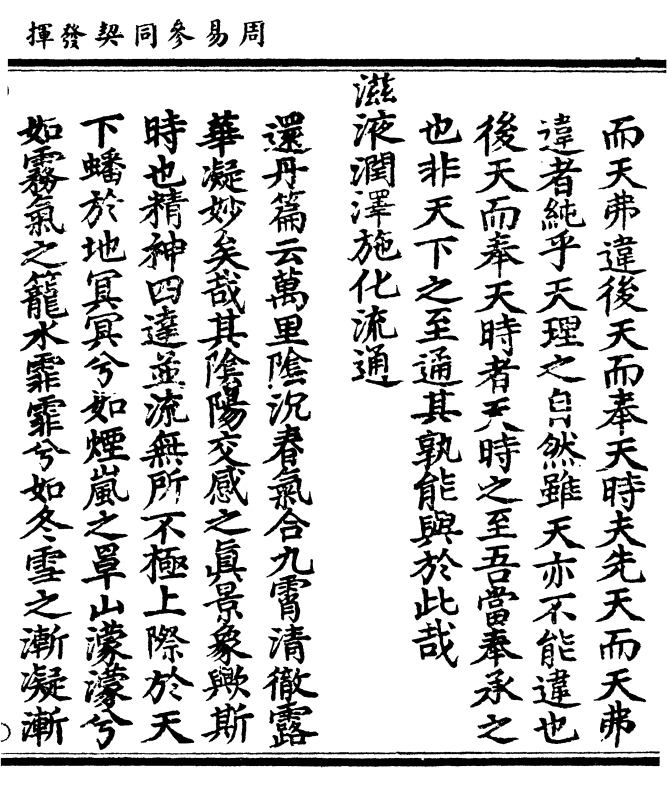 周易參同契發揮
而天弗違後天而奉天時夫先天而天弗
違者純乎天理之自然雖天亦不能違也
後天而奉天時者天時之至吾當奉承之
也非天下之至通其孰能與於此哉
滋液潤澤施化流通
還丹篇云萬里陰沉春氣合九霄清徹露
華凝妙矣哉其陰陽交感之眞景象歟斯
時也精神四達並流無所不極上際於天
下蟠於地冥冥兮如煙嵐之罩山濛濛兮
如霧氣之籠水霏霏兮如冬雪之漸凝漸